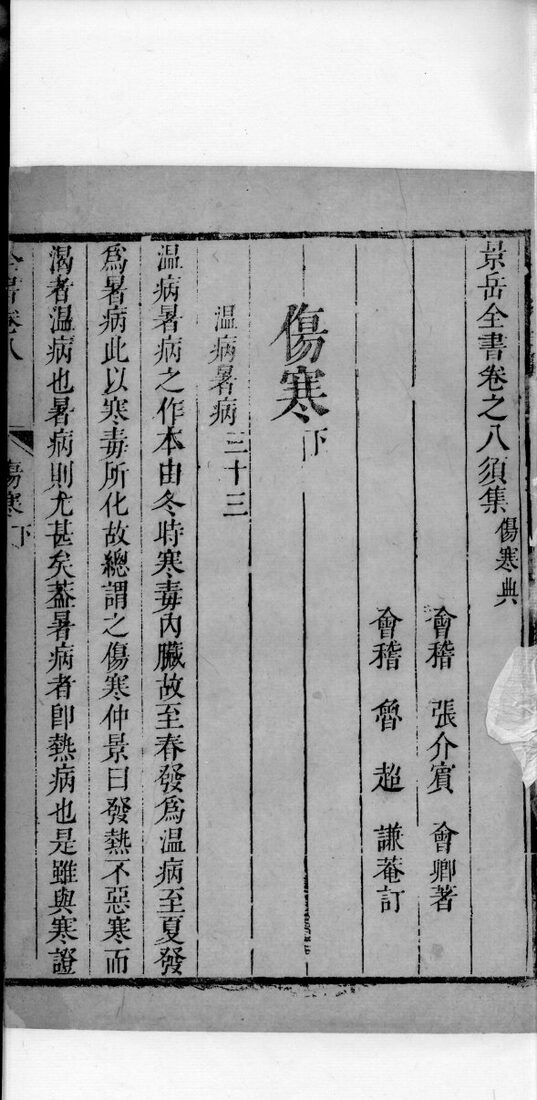 景岳全書卷之八須集傷寒典
會稽 張介賓 會卿著
會稽 魯超 謙菴訂
傷寒下
溫病暑病三十三
溫病暑病之作本由冬時寒毒內臟故至春發為溫病至夏發
為暑病此以寒毒所化故總謂之傷寒仲景曰發熱不惡寒而
渴者溫病也暑病則尤甚矣葢暑病者卽熱病也是雖與寒證
全書卷八 傷寒下